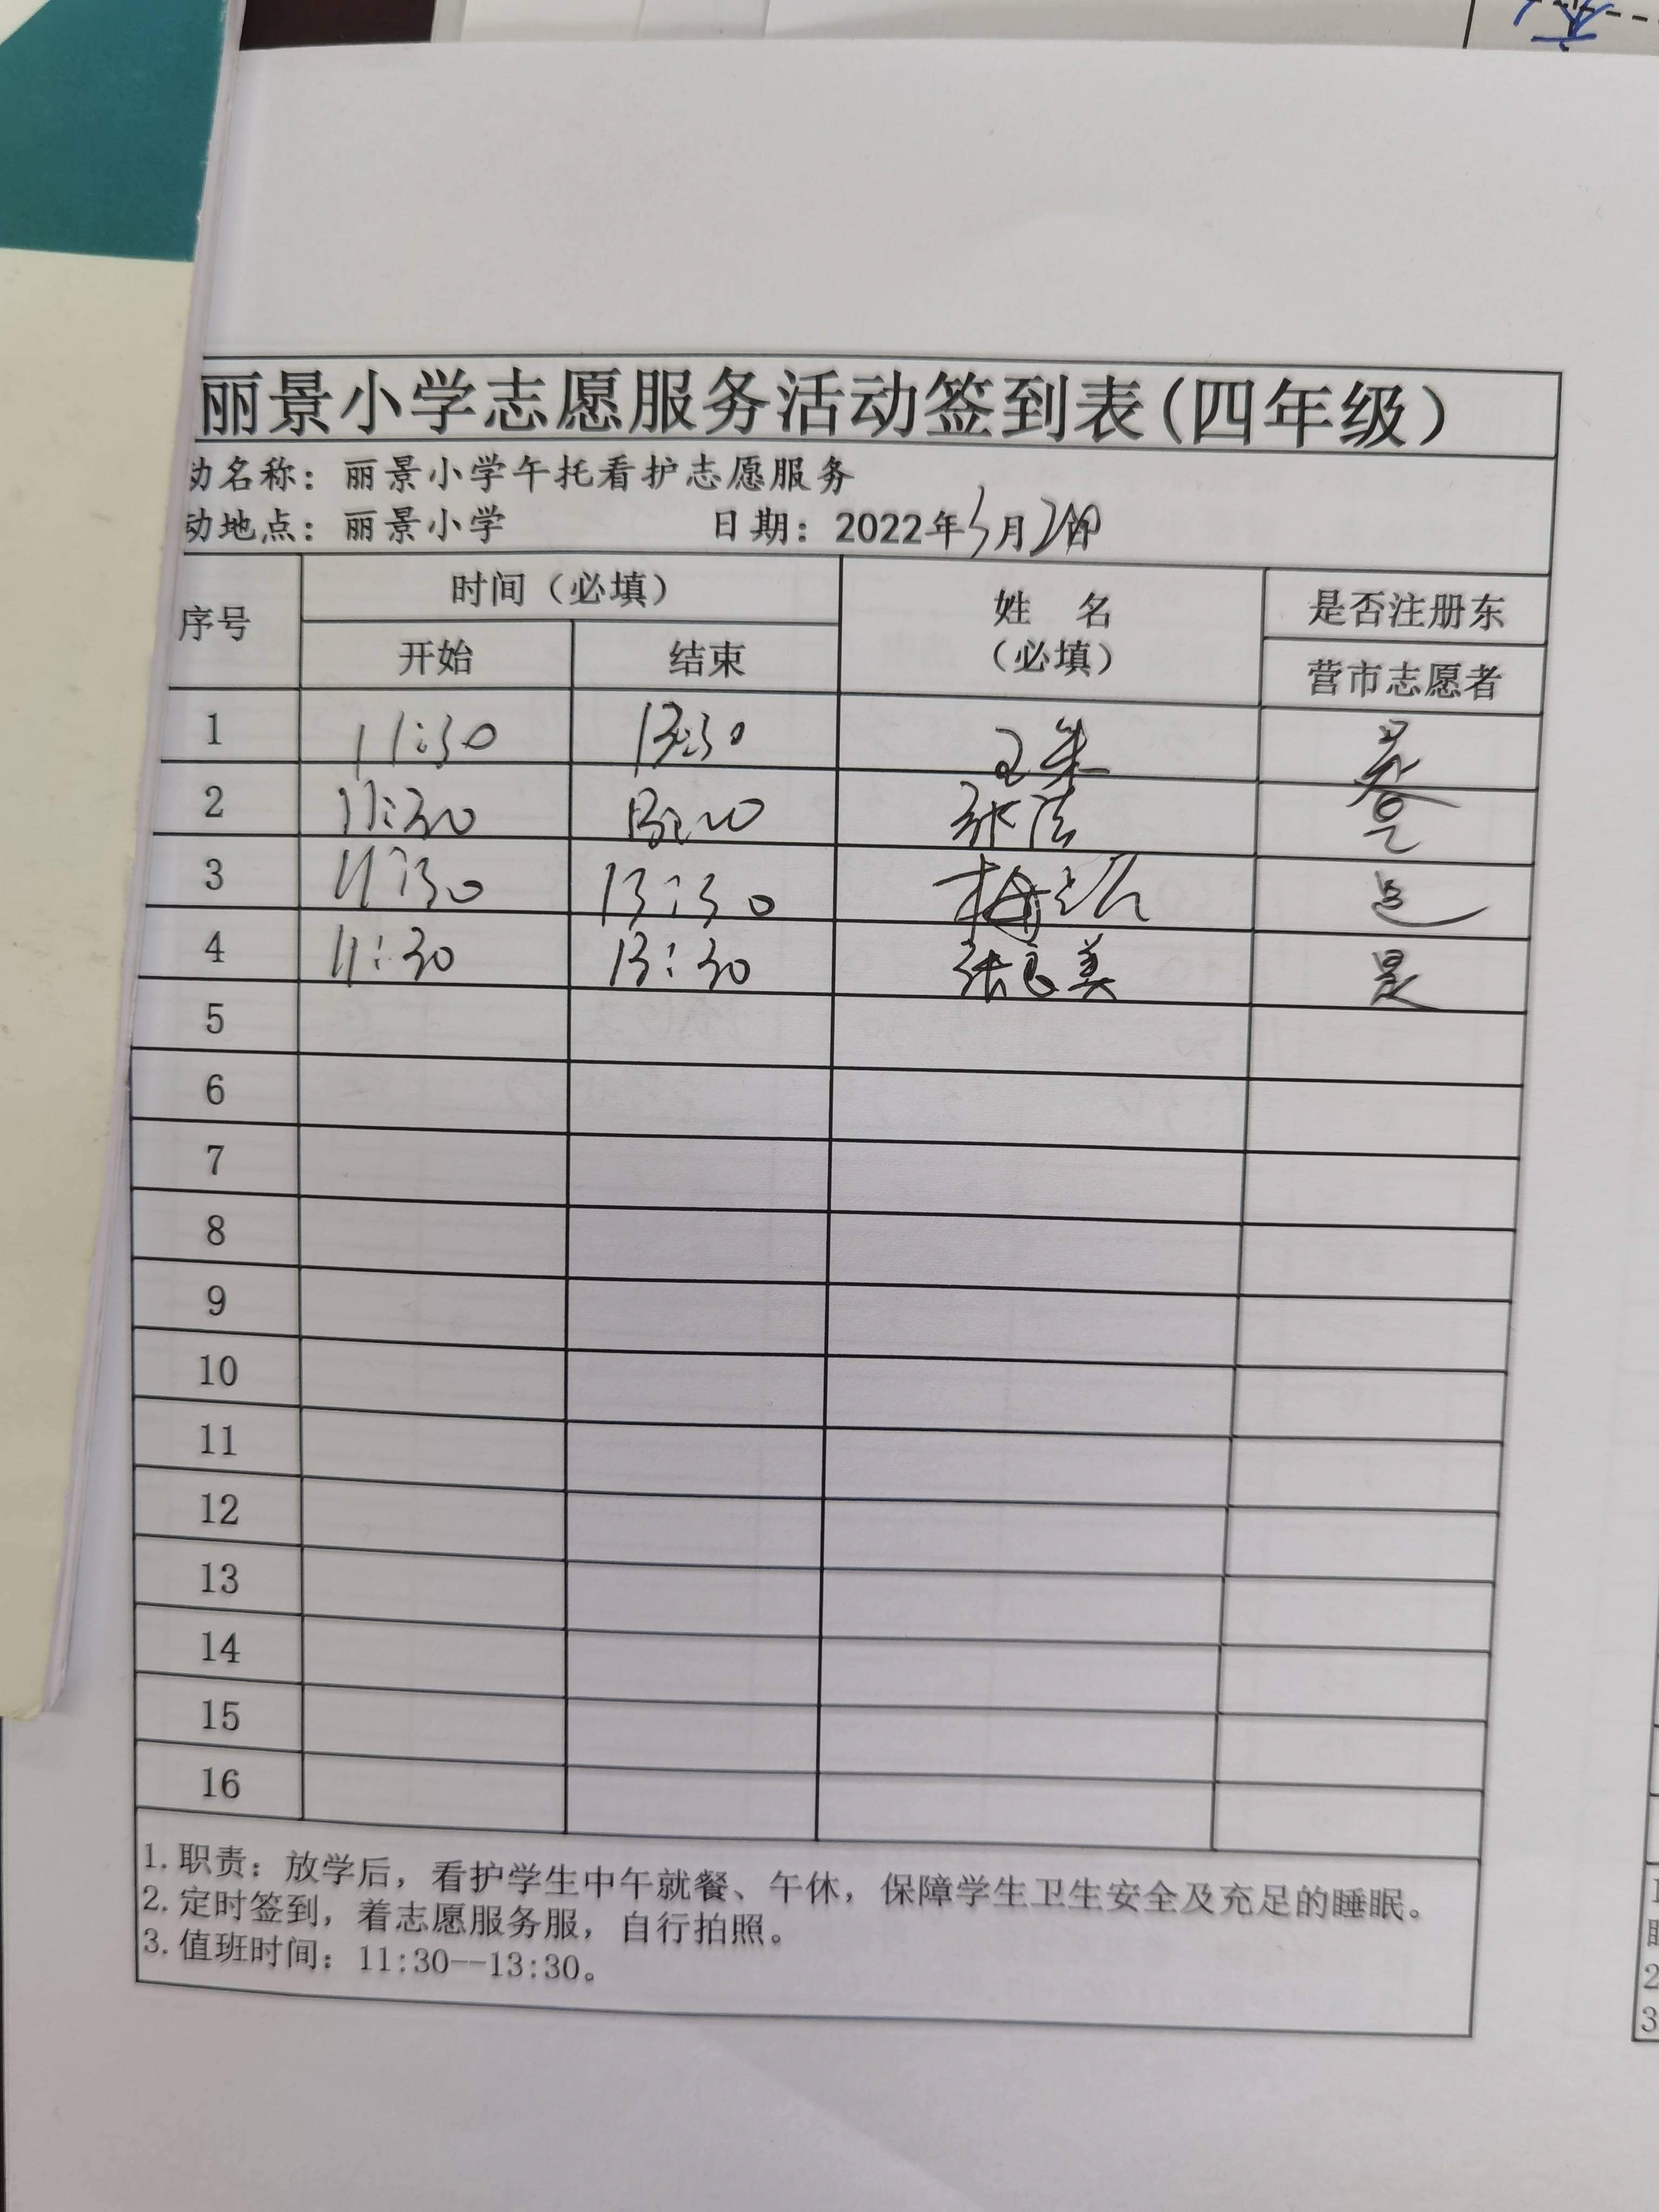 丽景小学志愿服务活动签到表(四年级)
动名称：丽景小学午托看护志愿服务
动地点：丽景小学 日期：2022年3月2日
序号 时间（必填） 姓 名（必填） 是否注册东营市志愿者
开始 结束
1 11:30 13:30 是
2 11:30 张洁 是
3 11:30 13:30 是
4 11:30 13:30 张良美 是
5
6
7
8
9
10
11
12
13
14
15
16
1.职责：放学后，看护学生中午就餐、午休，保障学生卫生安全及充足的睡眠。
2.定时签到，着志愿服务服，自行拍照。
3.值班时间：11:30--13:30。
2
3